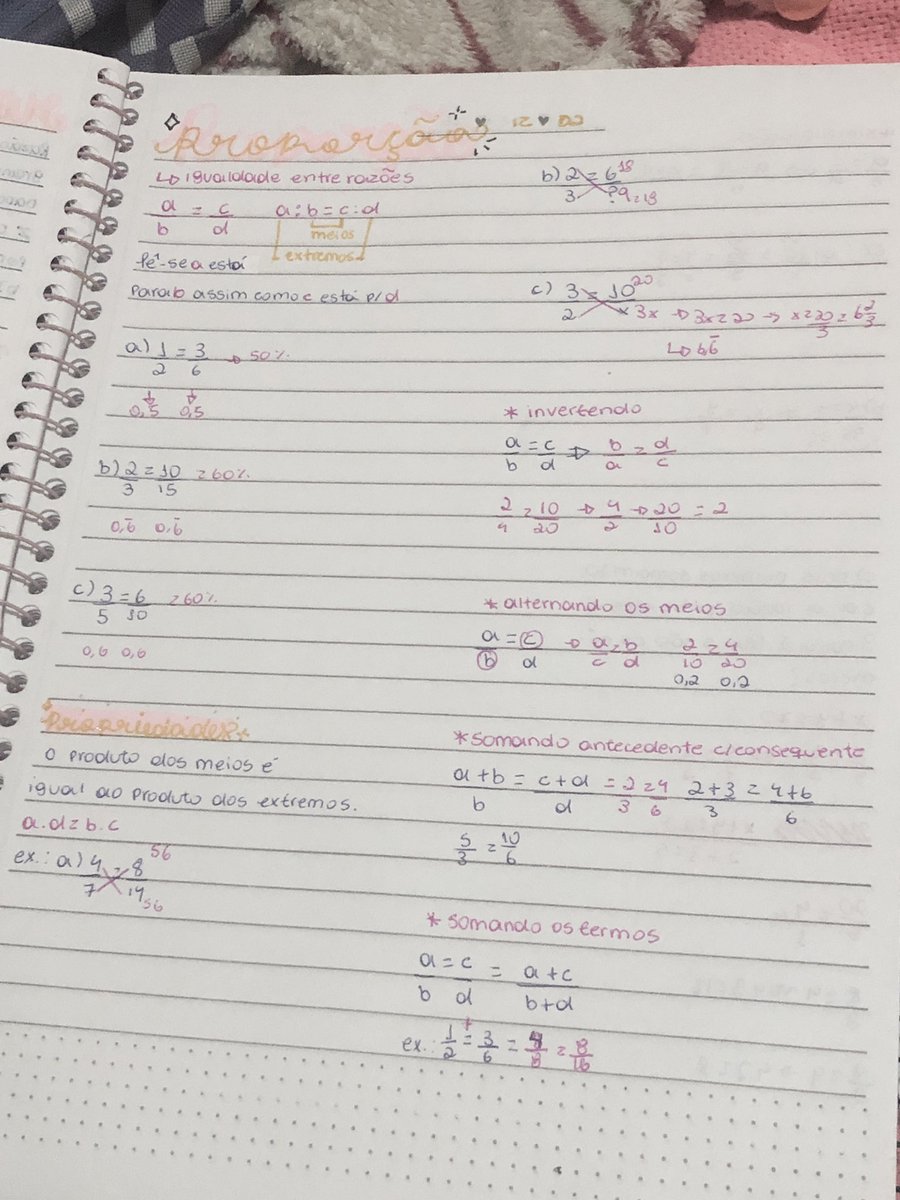 Proporção
↳ igualdade entre razões
a/b = c/d a:b = c:d
meios
extremos
lê-se a está
para b assim como c está p/ d
a) 1/2 = 3/6 → 50%
0,5 0,5
b) 2/3 = 10/15 = 60%
0,6̄ 0,6̄
c) 3/5 = 6/10 = 60%
0,6 0,6
Propriedades
O produto dos meios é
igual ao produto dos extremos.
a.d = b.c
ex.: a) 4/7 = 8/14 56
56
b) 2/3 = 6/?9 18
= 18
c) 3/2 = 10/x 20
3x → 3x = 20 → x = 20/3 = 6 2/3
↳ 6,6̄
* invertendo
a/b = c/d → b/a = d/c
2/4 = 10/20 → 4/2 → 20/10 = 2
* alternando os meios
a/b = c/d → a/c = b/d 2/10 = 4/20
0,2 0,2
* somando antecedente c/ consequente
a+b/b = c+d/d = 2/3 = 4/6 2+3/3 = 4+6/6
5/3 = 10/6
* somando os termos
a/b = c/d = a+c/b+d
ex.: 1/2 + = 3/6 = 4/8 = 8/16